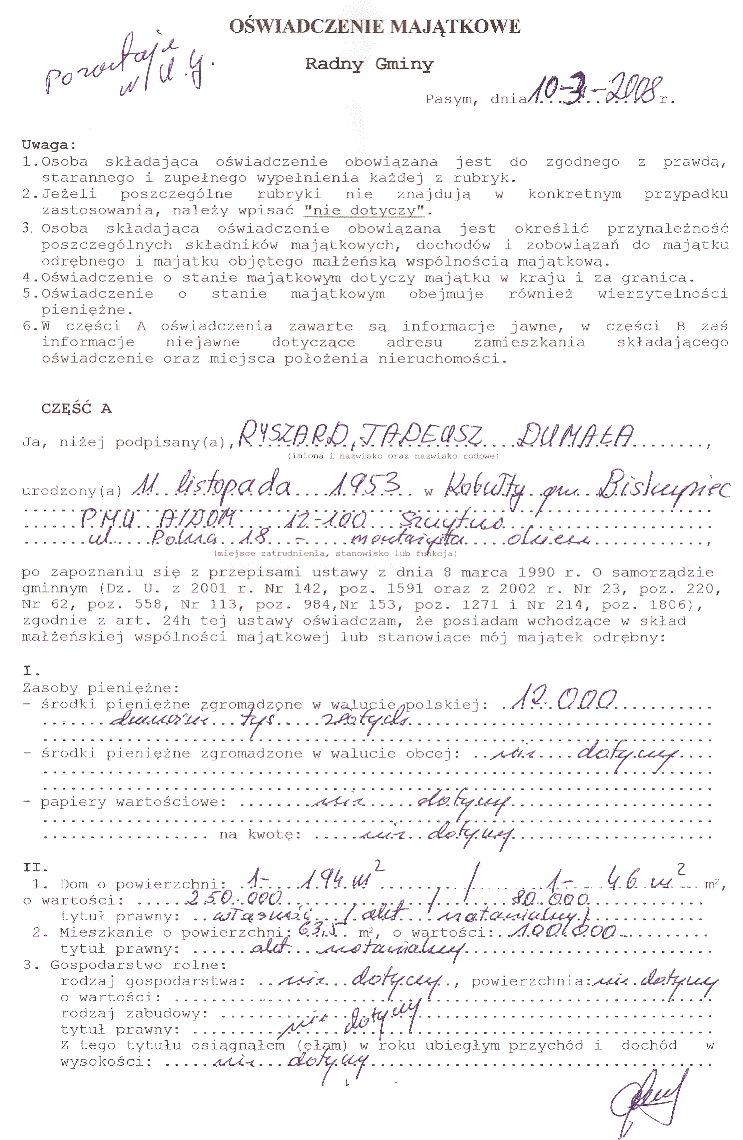 OŚWIADCZENIE MAJĄTKOWE
Pozostaje
w U.G.
Radny Gminy
Pasym, dnia 10-3-2008 r.
Uwaga:
1.Osoba składająca oświadczenie obowiązana jest do zgodnego z prawdą,
starannego i zupełnego wypełnienia każdej z rubryk.
2.Jeżeli poszczególne rubryki nie znajdują w konkretnym przypadku
zastosowania, należy wpisać "nie dotyczy".
3. Osoba składająca oświadczenie obowiązana jest określić przynależność
poszczególnych składników majątkowych, dochodów i zobowiązań do majątku
odrębnego i majątku objętego małżeńską wspólnością majątkową.
4.Oświadczenie o stanie majątkowym dotyczy majątku w kraju i za granicą.
5.Oświadczenie o stanie majątkowym obejmuje również wierzytelności
pieniężne.
6.W części A oświadczenia zawarte są informacje jawne, w części B zaś
informacje niejawne dotyczące adresu zamieszkania składającego
oświadczenie oraz miejsca położenia nieruchomości.
CZĘŚĆ A
Ja, niżej podpisany(a), RYSZARD, TADEUSZ DUMAŁA,
(imiona i nazwisko oraz nazwisko rodowe)
urodzony(a) 11 listopada 1953 w Kobułty gm. Biskupiec
P.M.U. 12-100 Szczytno
ul. Polna 18 - montażysta okien,
(miejsce zatrudnienia, stanowisko lub funkcja)
po zapoznaniu się z przepisami ustawy z dnia 8 marca 1990 r. O samorządzie
gminnym (Dz. U. z 2001 r. Nr 142, poz. 1591 oraz z 2002 r. Nr 23, poz. 220,
Nr 62, poz. 558, Nr 113, poz. 984,Nr 153, poz. 1271 i Nr 214, poz. 1806),
zgodnie z art. 24h tej ustawy oświadczam, że posiadam wchodzące w skład
małżeńskiej wspólności majątkowej lub stanowiące mój majątek odrębny:
I.
Zasoby pieniężne:
- środki pieniężne zgromadzone w walucie polskiej: 12.000
dwanaście tys złotych
- środki pieniężne zgromadzone w walucie obcej: nie dotyczy
- papiery wartościowe: nie dotyczy
na kwotę: nie dotyczy
II.
1. Dom o powierzchni: 1- 194 m² / 1- 46 m² m²,
o wartości: 250.000 / 80.000
tytuł prawny: własność / akt notarialny /
2. Mieszkanie o powierzchni: 63,5 m², o wartości: 100.000
tytuł prawny: akt notarialny
3. Gospodarstwo rolne:
rodzaj gospodarstwa: nie dotyczy, powierzchnia: nie dotyczy
o wartości:
rodzaj zabudowy:
tytuł prawny: nie dotyczy
Z tego tytułu osiągnąłem (ęłam) w roku ubiegłym przychód i dochód w
wysokości: nie dotyczy